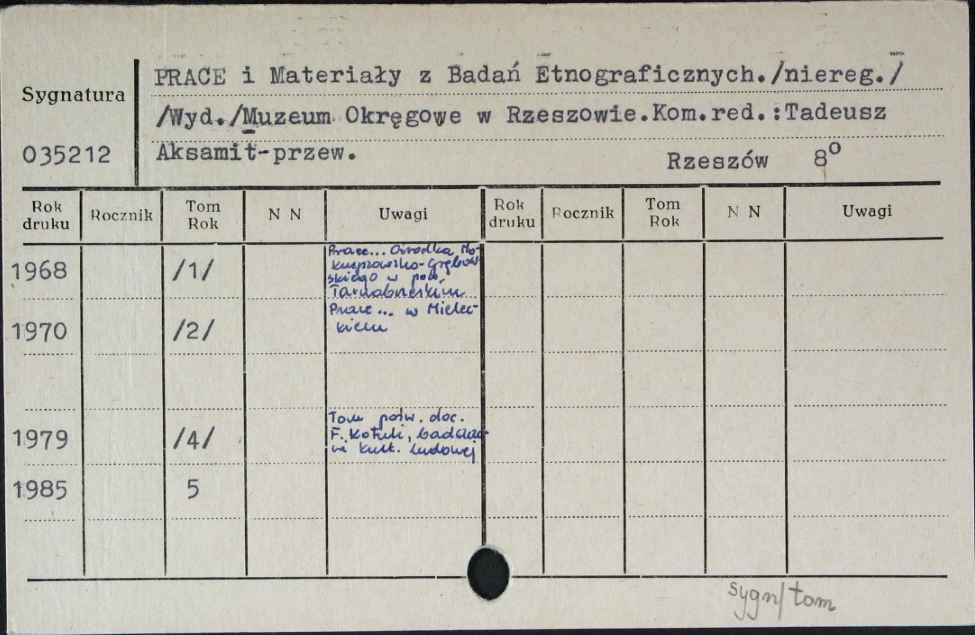 Sygnatura
035212
PRACE i Materiały z Badań Etnograficznych./niereg./
/Wyd./Muzeum Okręgowe w Rzeszowie.Kom.red.:Tadeusz
Aksamit-przew. Rzeszów 8º
Rok druku Rocznik Tom Rok N N Uwagi Rok druku Rocznik Tom Rok N N Uwagi
1968 /1/ Prace... Ośrodka Mo-
krzyszowsko-Grębow
skiego w pow.
Tarnobrzeskim
1970 /2/ Prace... w Mielec-
kiem
1979 /4/ Tom pośw. doc.
F. Kotuli, badacza-
wi kult. ludowej
1985 5
sygn/tom